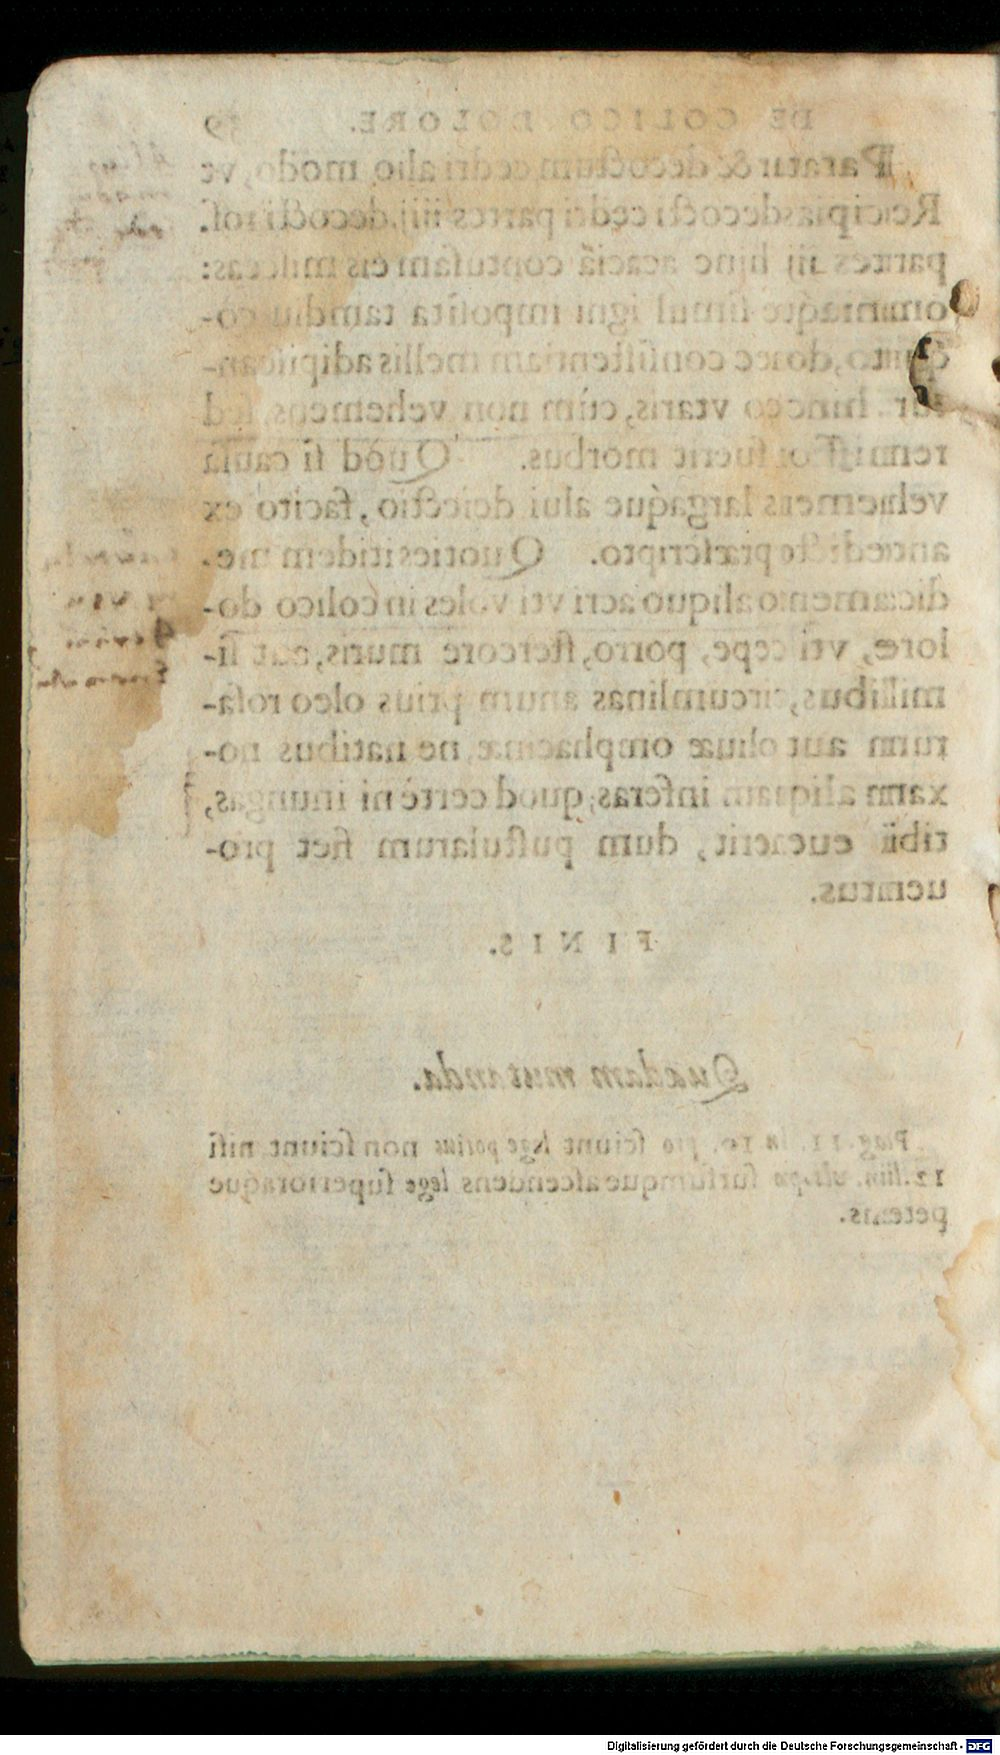 DE COLICO DOLORE. 39
Paratur & decoctum cedri alio modo, vt
Recipias decocti cedri partes iiij. decocti ros.
partes iij hinc acaciā contusam eis misceas:
omniaq́ue simul igni imposita tamdiu co-
quito, donec consistentiam mellis adipiscan-
tur. hincco vtaris, cùm non vehemens, sed
remissior fuerit morbus. Quòd si causa
vehemens largaq́ue alui deiectio, facito ex
antedicto præscripto. Quoties itidem me-
dicamento aliquo acri vti voles in colico do-
lore, vti cepe, porro, stercore muris, aut si-
milibus, circumlinas anum prius oleo rosa-
rum aut oliuæ omphacinæ, ne natibus no-
xam aliquam inferas, quod certè ni inungas,
tibi euenerit, dum pustularum fiet pro-
uentus.
FINIS.
Quædam mutanda.
Pag. 11. 10. pro sciunt lege potius non sciunt nisi
12. lin. sursumque ascendens lege superioraque
petens.
Digitalisierung gefördert durch die Deutsche Forschungsgemeinschaft - DFG